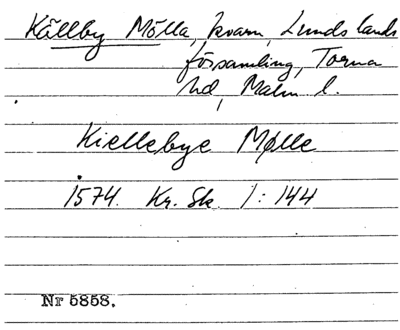 Källby Mölla, kvarn, Lunds lands
församling, Torna
hd, Malm l.
Kiellebye Mølle
1574. Kr. Sk. 1:144
Nr 5858.